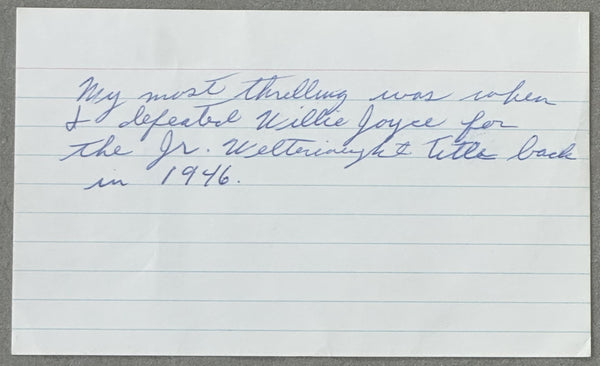 My most thrilling was when
I defeated Willie Joyce for
the Jr. Welterweight Title back
in 1946.